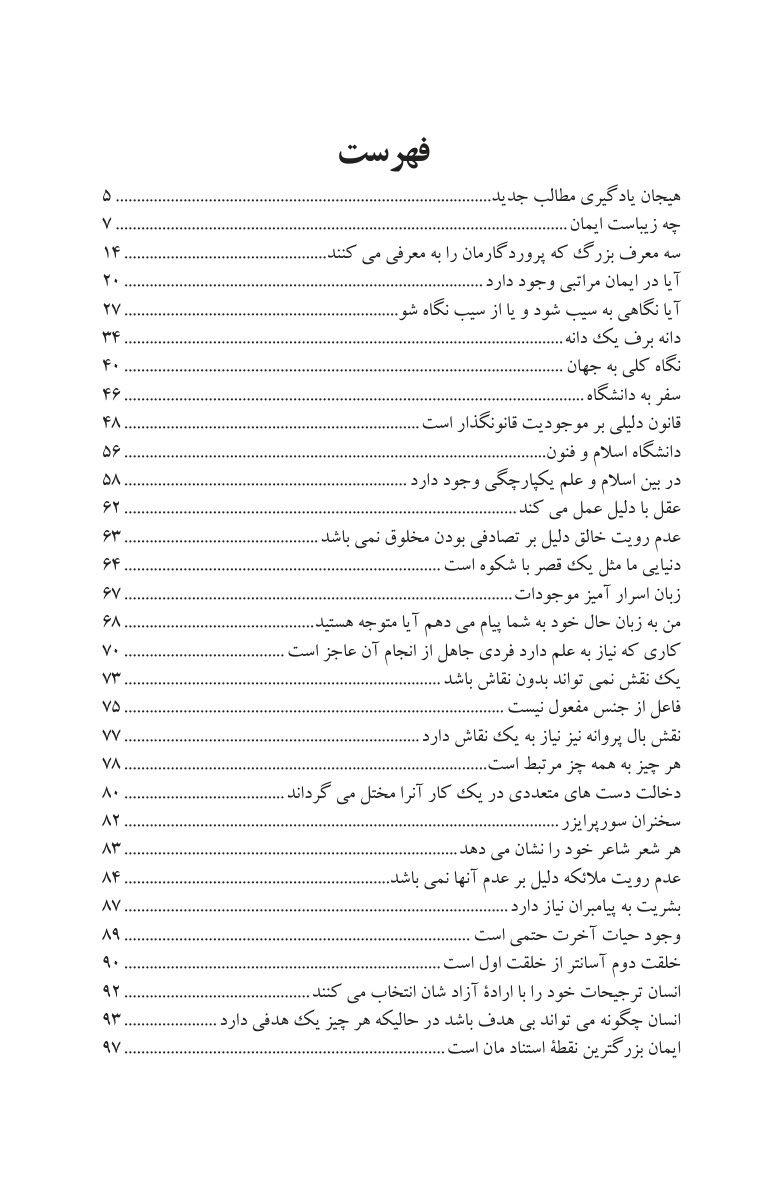 فهرست
هیجان یادگیری مطالب جدید........................................................................................ ۵
چه زیباست ایمان ......................................................................................................... ۷
سه معرف بزرگ که پروردگارمان را به معرفی می کنند............................................... ۱۴
آیا در ایمان مراتبی وجود دارد .................................................................................... ۲۰
آیا نگاهی به سیب شود و یا از سیب نگاه شو................................................................ ۲۷
دانه برف یک دانه...................................................................................................... ۳۴
نگاه کلی به جهان ...................................................................................................... ۴۰
سفر به دانشگاه ........................................................................................................... ۴۶
قانون دلیلی بر موجودیت قانونگذار است ..................................................................... ۴۸
دانشگاه اسلام و فنون................................................................................................... ۵۶
در بین اسلام و علم یکپارچگی وجود دارد ................................................................... ۵۸
عقل با دلیل عمل می کند ............................................................................................ ۶۲
عدم رویت خالق دلیل بر تصادفی بودن مخلوق نمی باشد .............................................. ۶۳
دنیایی ما مثل یک قصر با شکوه است .......................................................................... ۶۴
زبان اسرار آمیز موجودات........................................................................................... ۶۷
من به زبان حال خود به شما پیام می دهم آیا متوجه هستید............................................. ۶۸
کاری که نیاز به علم دارد فردی جاهل از انجام آن عاجز است ...................................... ۷۰
یک نقش نمی تواند بدون نقاش باشد .......................................................................... ۷۳
فاعل از جنس مفعول نیست ......................................................................................... ۷۵
نقش بال پروانه نیز نیاز به یک نقاش دارد ..................................................................... ۷۷
هر چیز به همه چز مرتبط است..................................................................................... ۷۸
دخالت دست های متعددی در یک کار آنرا مختل می گرداند ...................................... ۸۰
سخنران سورپرایزر ...................................................................................................... ۸۲
هر شعر شاعر خود را نشان می دهد.............................................................................. ۸۳
عدم رویت ملائکه دلیل بر عدم آنها نمی باشد............................................................... ۸۴
بشریت به پیامبران نیاز دارد.......................................................................................... ۸۷
وجود حیات آخرت حتمی است ................................................................................. ۸۹
خلقت دوم آسانتر از خلقت اول است .......................................................................... ۹۰
انسان ترجیحات خود را با ارادۀ آزاد شان انتخاب می کنند............................................ ۹۲
انسان چگونه می تواند بی هدف باشد در حالیکه هر چیز یک هدفی دارد ...................... ۹۳
ایمان بزرگترین نقطۀ استناد مان است ........................................................................... ۹۷